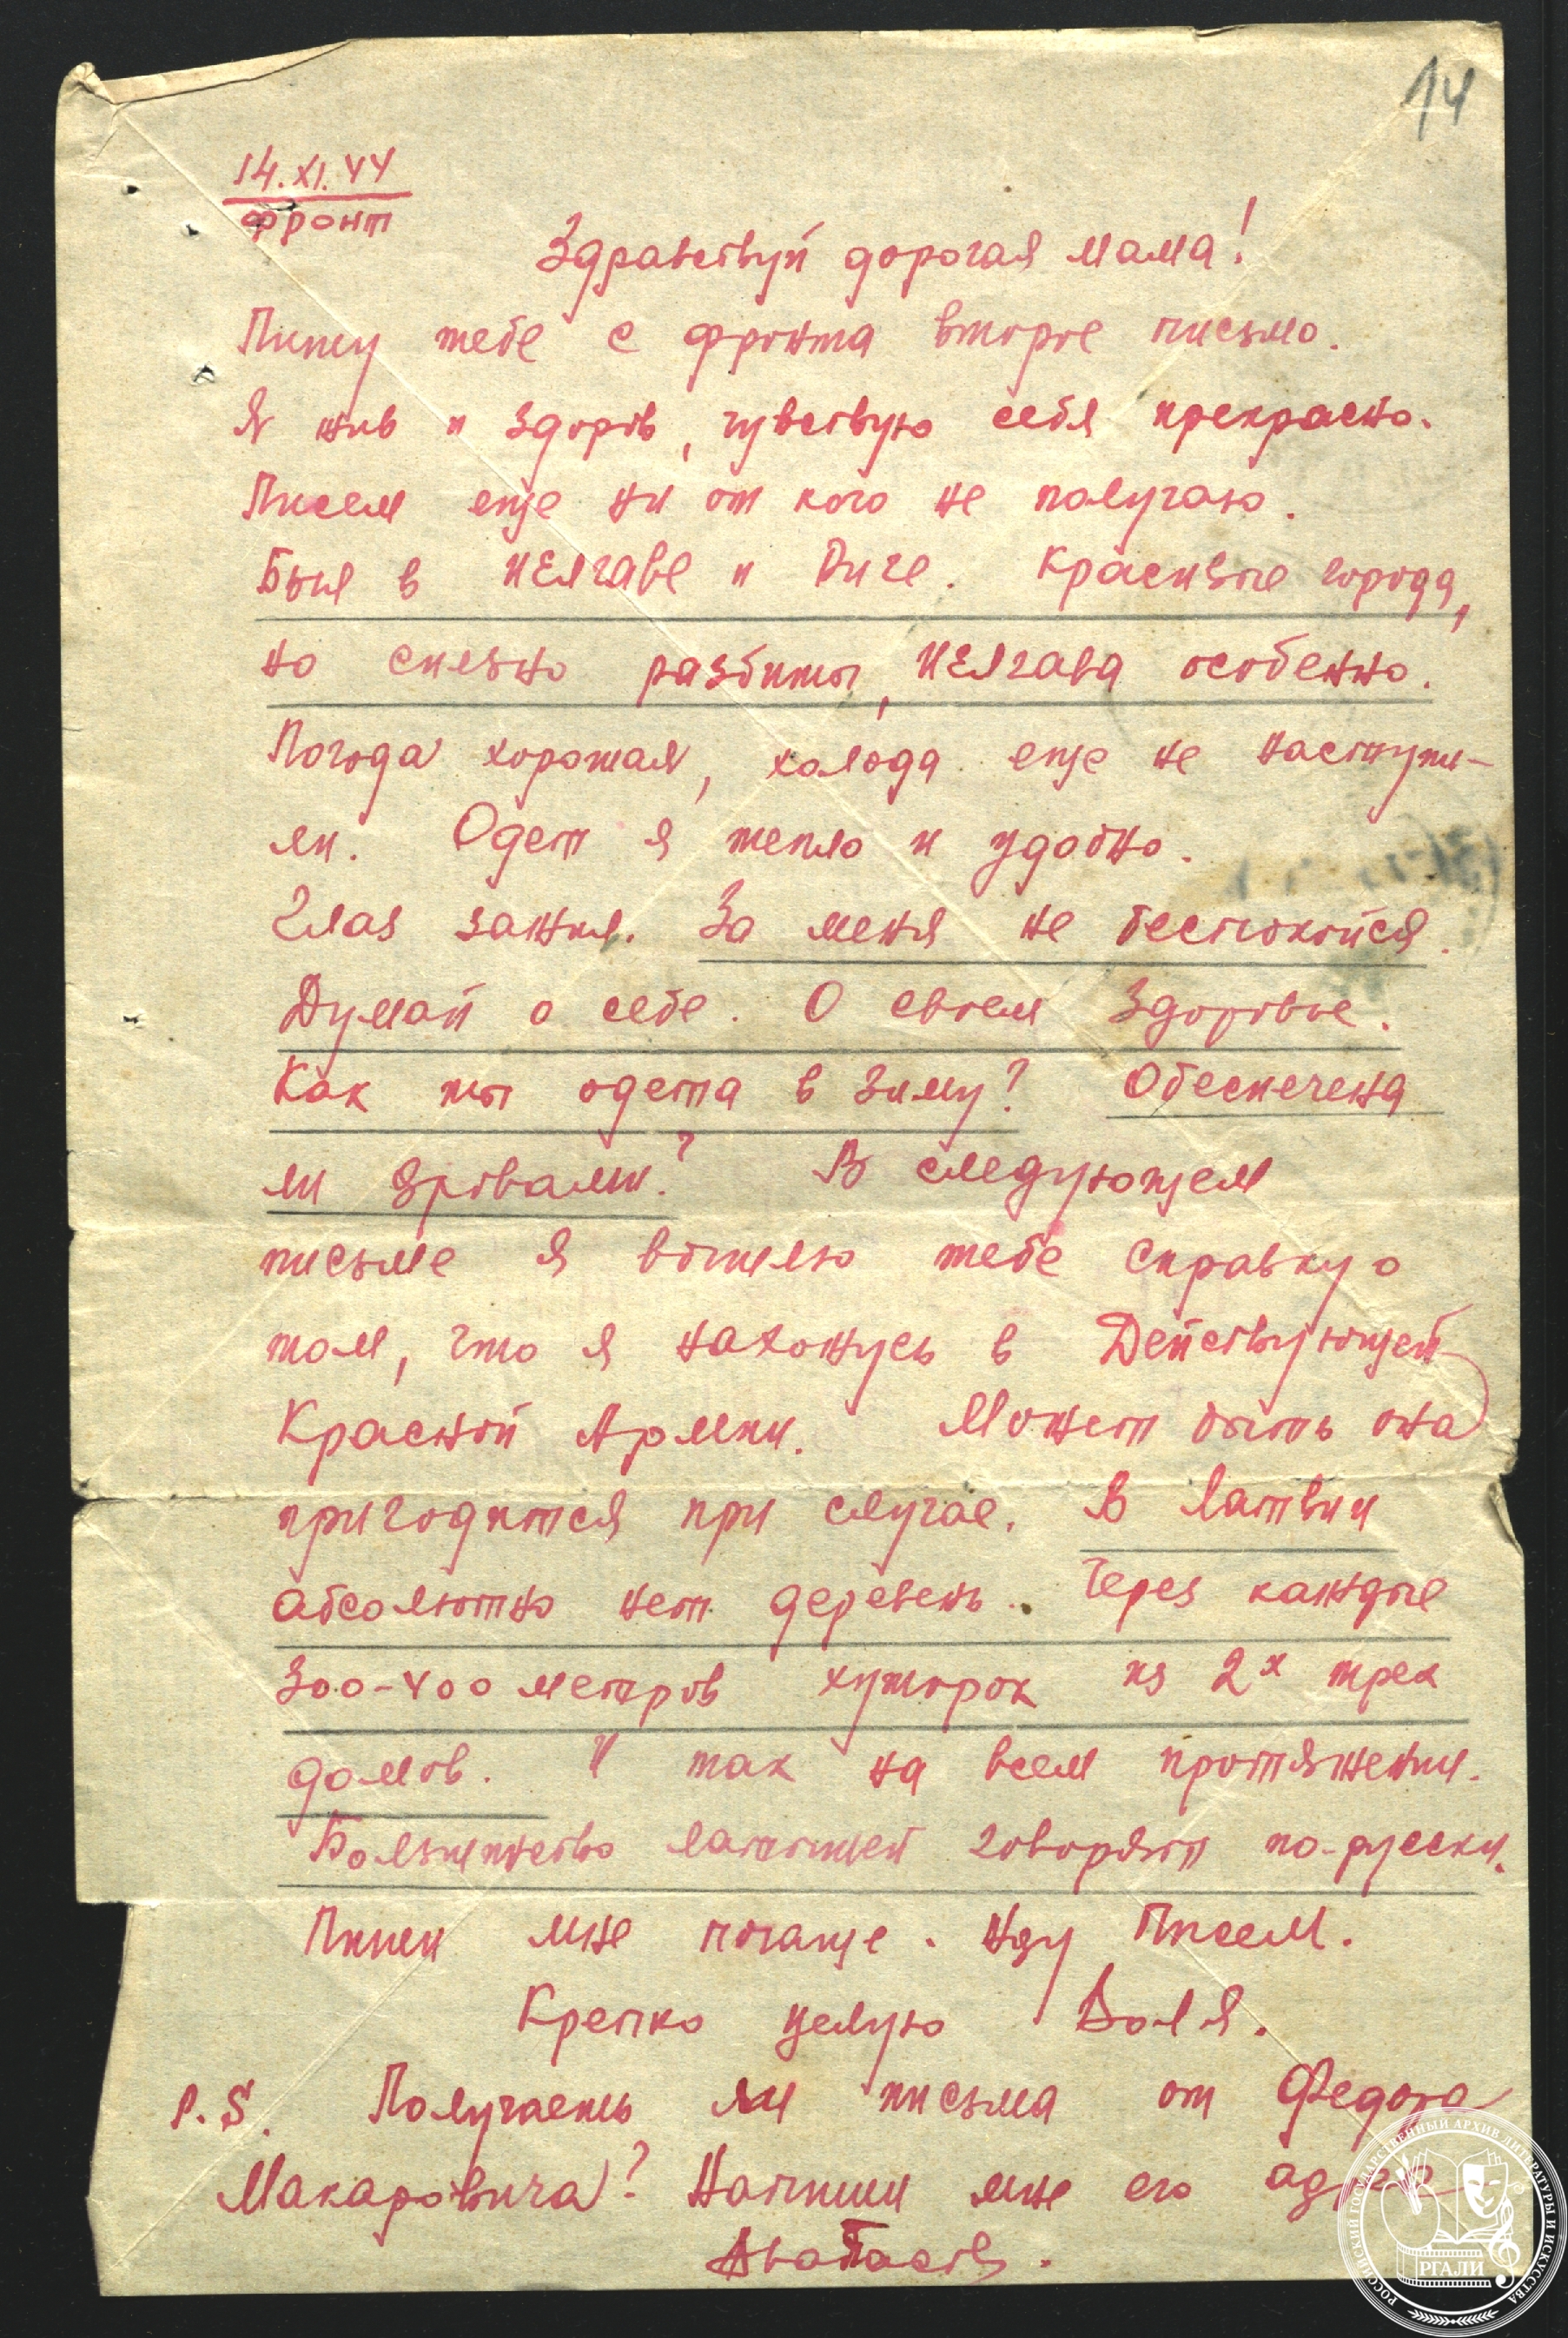 14
14.XI.44
фронт
Здравствуй дорогая мама!
Пишу тебе с фронта второе письмо.
Я жив и здоров, чувствую себя прекрасно.
Писем еще ни от кого не получаю.
Был в Иелгаве и Риге. Красивые города,
но сильно разбиты, Иелгава особенно.
Погода хорошая, холода еще не наступи-
ли. Одет я тепло и удобно.
Глаз зажил. За меня не беспокойся.
Думай о себе. О своем здоровье.
Как ты одета в зиму? Обеспечена
ли дровами? В следующем
письме я вышлю тебе справку о
том, что я нахожусь в Действующей
Красной Армии. Может быть она
пригодится при случае. В Латвии
абсолютно нет деревень. Через каждые
300-400 метров хуторок из 2х трех
домов. И так на всем протяжении.
Большинство латышей говорят по-русски.
Пиши мне почаще. Жду Писем.
Крепко целую Воля.
P.S. Получаешь ли письма от Федора
Макаровича? Напиши мне его адрес
РОССИЙСКИЙ ГОСУДАРСТВЕННЫЙ АРХИВ ЛИТЕРАТУРЫ И ИСКУССТВА
РГАЛИ